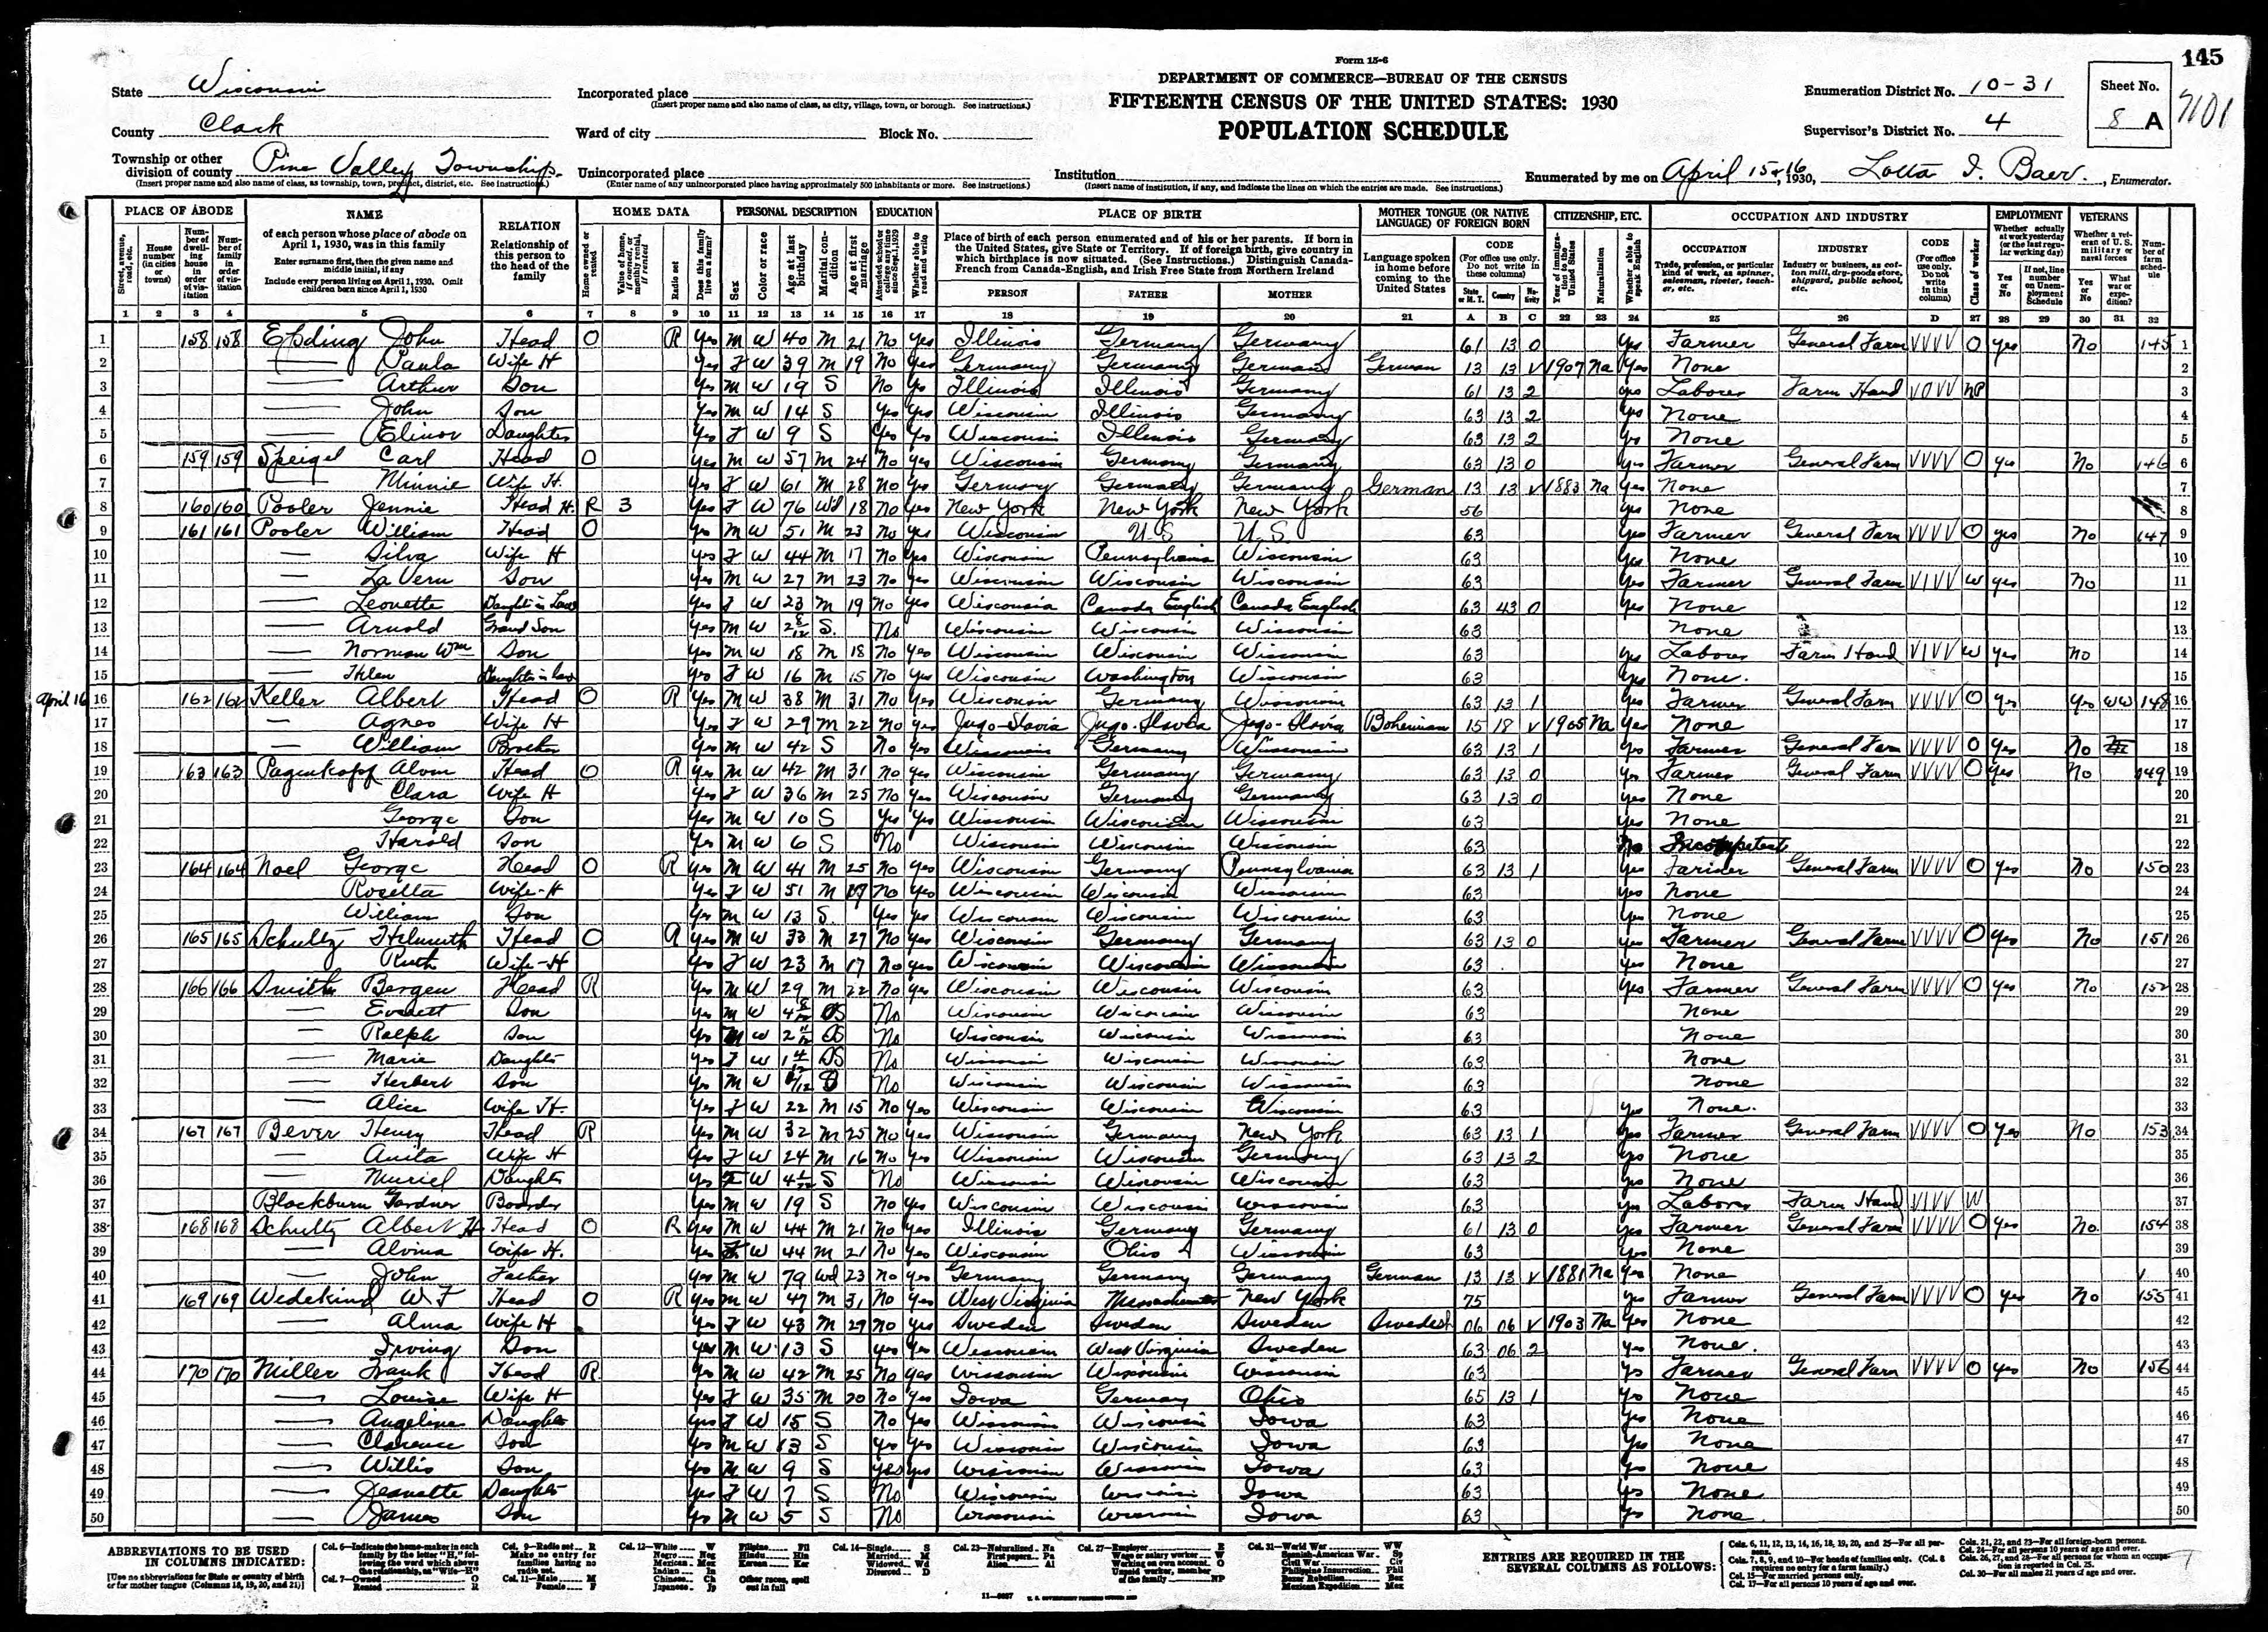 145
Form 15-6
DEPARTMENT OF COMMERCE—BUREAU OF THE CENSUS
FIFTEENTH CENSUS OF THE UNITED STATES: 1930
POPULATION SCHEDULE
State Wisconsin
County Clark
Township or other division of county Pine Valley Township.
(Insert proper name and also name of class, as township, town, precinct, district, etc. See instructions.)
Incorporated place
(Insert proper name and also name of class, as city, village, town, or borough. See instructions.)
Ward of city Block No.
Unincorporated place
(Enter name of any unincorporated place having approximately 500 inhabitants or more. See instructions.)
Institution
(Insert name of institution, if any, and indicate the lines on which the entries are made. See instructions.)
Enumeration District No. 10-31
Supervisor's District No. 4
Sheet No. 8 A
Enumerated by me on April 15+16, 1930, Lotta I. Baer, Enumerator.
PLACE OF ABODE NAME RELATION HOME DATA PERSONAL DESCRIPTION EDUCATION PLACE OF BIRTH MOTHER TONGUE (OR NATIVE LANGUAGE) OF FOREIGN BORN CITIZENSHIP, ETC. OCCUPATION AND INDUSTRY EMPLOYMENT VETERANS
1 158 158 Epding John Head O R Yes M W 40 M 21 No Yes Illinois Germany Germany 61 13 0 Yes Farmer General Farm VVVV O Yes No 145 1
2 Paula Wife H Yes F W 39 M 19 No Yes Germany Germany Germany German 13 13 V 1907 Na Yes None 2
3 Arthur Son Yes M W 19 S No Yes Illinois Illinois Germany 61 13 2 Yes Laborer Farm Hand VOVV NP 3
4 John Son Yes M W 14 S Yes Yes Wisconsin Illinois Germany 63 13 2 Yes None 4
5 Elinor Daughter Yes F W 9 S Yes Yes Wisconsin Illinois Germany 63 13 2 Yes None 5
6 159 159 Speigel Carl Head O Yes M W 57 M 24 No Yes Wisconsin Germany Germany 63 13 0 Yes Farmer General Farm VVVV O Yes No 146 6
7 Minnie Wife H. Yes F W 61 M 28 No Yes Germany Germany Germany German 13 13 V 1883 Na Yes None 7
8 160 160 Pooler Jennie Head H. R 3 Yes F W 76 Wd 18 No Yes New York New York New York 56 Yes None 8
9 161 161 Pooler William Head O Yes M W 51 M 23 No Yes Wisconsin U.S U.S. 63 Yes Farmer General Farm VVVV O Yes No 147 9
10 Silva Wife H Yes F W 44 M 17 No Yes Wisconsin Pennsylvania Wisconsin 63 Yes None 10
11 La Vern Son Yes M W 27 M 23 No Yes Wisconsin Wisconsin Wisconsin 63 Yes Farmer General Farm VIVV W Yes No 11
12 Leonette Daughter in Law Yes F W 23 M 19 No Yes Wisconsin Canada English Canada English 63 43 0 Yes None 12
13 Arnold Grand Son Yes M W 2 8/12 S. No Wisconsin Wisconsin Wisconsin 63 None 13
14 Norman Wm Son Yes M W 18 M 18 No Yes Wisconsin Wisconsin Wisconsin 63 Yes Laborer Farm Hand VIVV W Yes No 14
15 Helen Daughter in law Yes F W 16 M 15 No Yes Wisconsin Washington Wisconsin 63 Yes None. 15
April 16 16 162 162 Keller Albert Head O R Yes M W 38 M 31 No Yes Wisconsin Germany Wisconsin 63 13 1 Yes Farmer General Farm VVVV O Yes Yes WW 148 16
17 Agnes Wife H Yes F W 29 M 22 No Yes Jugo-Slavia Jugo-Slavia Jugo-Slavia Bohemian 15 18 V 1905 Na Yes None 17
18 William Brother Yes M W 42 S No Yes Wisconsin Germany Wisconsin 63 13 1 Yes Farmer General Farm VVVV O Yes No 18
19 163 163 Pagenkopf Alvin Head O R Yes M W 42 M 31 No Yes Wisconsin Germany Germany 63 13 0 Yes Farmer General Farm VVVV O Yes No 149 19
20 Clara Wife H Yes F W 36 M 25 No Yes Wisconsin Germany Germany 63 13 0 Yes None 20
21 George Son Yes M W 10 S Yes Yes Wisconsin Wisconsin Wisconsin 63 Yes None 21
22 Harold Son Yes M W 6 S No Wisconsin Wisconsin Wisconsin 63 No Incompetent 22
23 164 164 Noel George Head O R Yes M W 41 M 25 No Yes Wisconsin Germany Pennsylvania 63 13 1 Yes Farmer General Farm VVVV O Yes No 150 23
24 Rosella Wife-H Yes F W 51 M No Yes Wisconsin Wisconsin Wisconsin 63 Yes None 24
25 William Son Yes M W 13 S. Yes Yes Wisconsin Wisconsin Wisconsin 63 Yes None 25
26 165 165 Schultz Helmuth Head O R Yes M W 33 M 27 No Yes Wisconsin Germany Germany 63 13 0 Yes Farmer General Farm VVVV O Yes No 151 26
27 Ruth Wife-H Yes F W 23 M 17 No Yes Wisconsin Wisconsin Wisconsin 63 Yes None 27
28 166 166 Smith Bergen Head R Yes M W 29 M 22 No Yes Wisconsin Wisconsin Wisconsin 63 Yes Farmer General Farm VVVV O Yes No 152 28
29 Everett Son Yes M W 4 S No Wisconsin Wisconsin Wisconsin 63 None 29
30 Ralph Son Yes M W 2 11/12 S No Wisconsin Wisconsin Wisconsin 63 None 30
31 Marie Daughter Yes F W 1 4/12 S No Wisconsin Wisconsin Wisconsin 63 None 31
32 Herbert Son Yes M W S No Wisconsin Wisconsin Wisconsin 63 None 32
33 Alice Wife H. Yes F W 22 M 15 No Yes Wisconsin Wisconsin Wisconsin 63 Yes None. 33
34 167 167 Bever Henry Head R Yes M W 32 M 25 No Yes Wisconsin Germany New York 63 13 1 Yes Farmer General Farm VVVV O Yes No 153 34
35 Anita Wife H Yes F W 24 M 16 No Yes Wisconsin Wisconsin Germany 63 13 2 Yes None 35
36 Muriel Daughter Yes F W 4 S No Wisconsin Wisconsin Wisconsin 63 Yes None 36
37 Blackburn Gardner Boarder Yes M W 19 S No Yes Wisconsin Wisconsin Wisconsin 63 Yes Laborer Farm Hand VIVV W 37
38 168 168 Schultz Albert H Head O R Yes M W 44 M 21 No Yes Illinois Germany Germany 61 13 0 Yes Farmer General Farm VVVV O Yes No. 154 38
39 Alvina Wife H. Yes F W 44 M 21 No Yes Wisconsin Ohio Wisconsin 63 Yes None 39
40 John Father Yes M W 79 Wd 23 No Yes Germany Germany Germany German 13 13 V 1881 Na Yes None 40
41 169 169 Wedekind W F Head O R Yes M W 47 M 31 No Yes West Virginia Massachusetts New York 75 Yes Farmer General Farm VVVV O Yes No 155 41
42 Alma Wife H Yes F W 43 M 29 No Yes Sweden Sweden Sweden Swedish 06 06 V 1903 Na Yes None 42
43 Irving Son Yes M W 13 S Yes Yes Wisconsin West Virginia Sweden 63 06 2 Yes None. 43
44 170 170 Miller Frank Head R Yes M W 42 M 25 No Yes Wisconsin Wisconsin Wisconsin 63 Yes Farmer General Farm VVVV O Yes No 156 44
45 Louise Wife H Yes F W 35 M 20 No Yes Iowa Germany Ohio 65 13 1 Yes None 45
46 Angeline Daughter Yes F W 15 S No Yes Wisconsin Wisconsin Iowa 63 Yes None 46
47 Clarence Son Yes M W 13 S Yes Yes Wisconsin Wisconsin Iowa 63 Yes None 47
48 Willis Son Yes M W 9 S Yes Yes Wisconsin Wisconsin Iowa 63 Yes None 48
49 Jeanette Daughter Yes F W 7 S No Wisconsin Wisconsin Iowa 63 Yes None 49
50 James Son Yes M W 5 S No Wisconsin Wisconsin Iowa 63 Yes None 50
ABBREVIATIONS TO BE USED IN COLUMNS INDICATED:
[Use no abbreviations for State or country of birth or for mother tongue (Columns 18, 19, 20, and 21)]
ENTRIES ARE REQUIRED IN THE SEVERAL COLUMNS AS FOLLOWS: